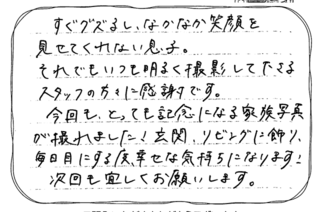 すぐグズるし、なかなか笑顔を
見せてくれない息子。
それでもいつも明るく撮影して下さる
スタッフの方々に感謝です。
今回も、とっても記念になる家族写真
が撮れました！玄関、リビングに飾り、
毎日目にする度幸せな気持ちになります！
次回も宜しくお願いします。